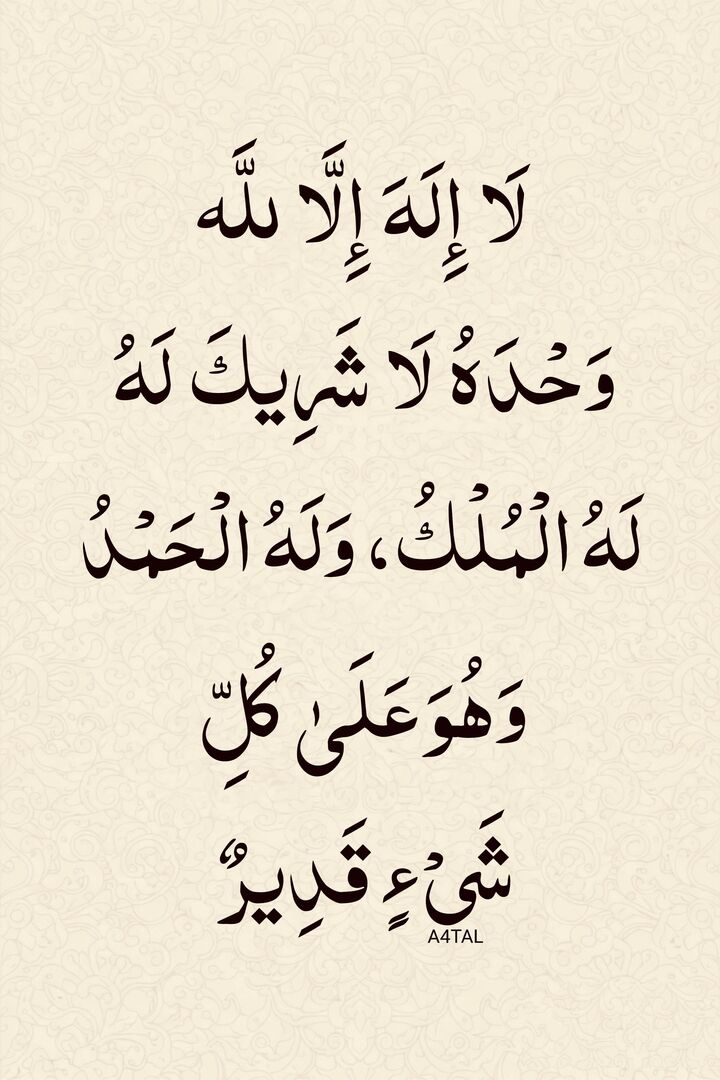 لَا إِلَهَ إِلَّا للَّه
وَحْدَهُ لَا شَرِيكَ لَهُ
لَهُ الْمُلْكُ، وَلَهُ الْحَمْدُ
وَهُوَ عَلَىٰ كُلِّ
شَيْءٍ قَدِيرٌ
A4TAL